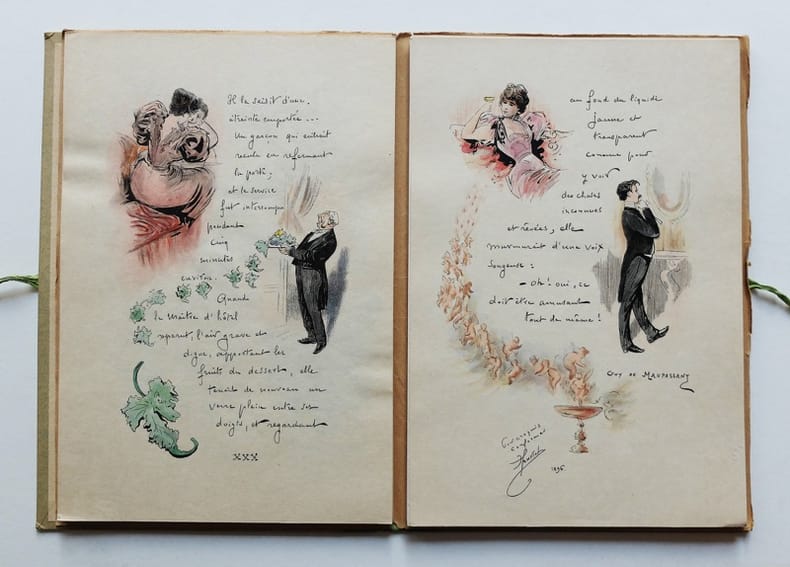 Il la saisit d'une
étreinte emportée...
Un garçon qui entrait
recula en refermant
la porte;
et le service
fut interrompu
pendant
cinq
minutes
environ.
Quand
le maître d'hôtel
reparut, l'air grave et
digne, apportant les
fruits du dessert, elle
tenait de nouveau un
verre plein entre ses
doigts, et regardant
XXX
au fond du liquide
jaune et
transparent
comme pour
y voir
des choses
inconnues
et rêvées, elle
murmurait d'une voix
songeuse:
- Oh! oui, ce
doit être amusant
tout de même!
GUY DE MAUPASSANT
1896